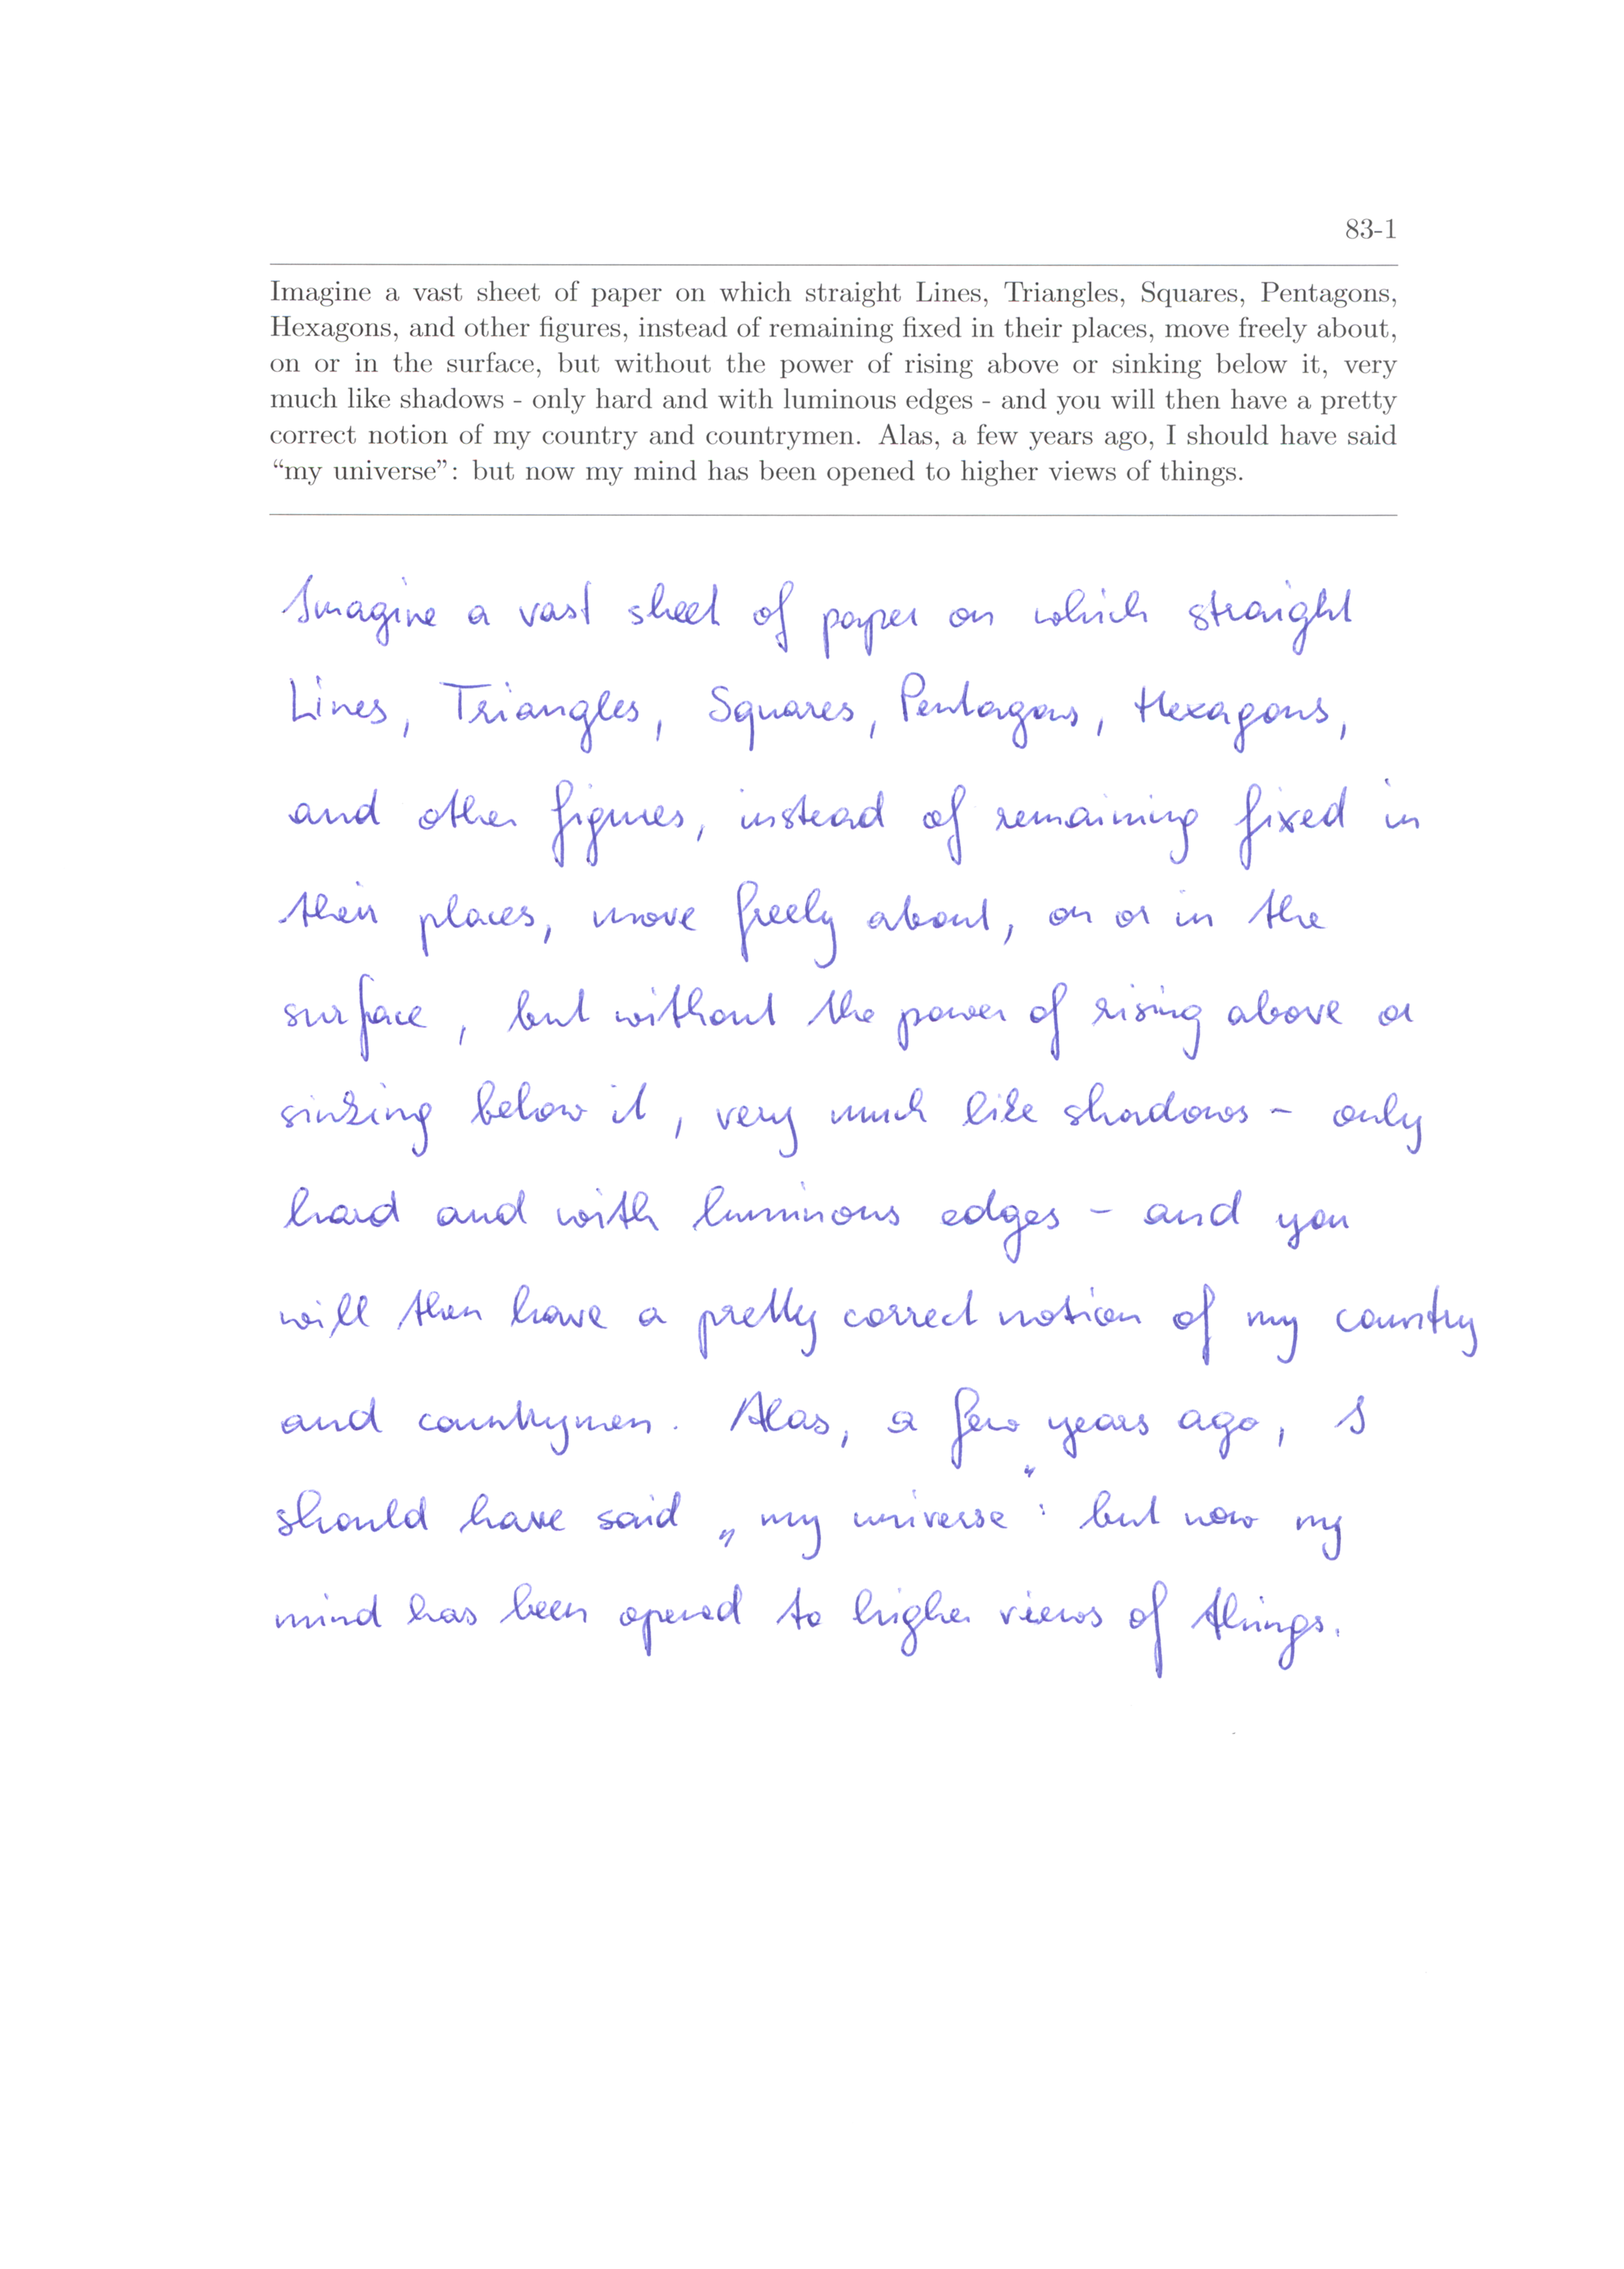 83-1
Imagine a vast sheet of paper on which straight Lines, Triangles, Squares, Pentagons,
Hexagons, and other figures, instead of remaining fixed in their places, move freely about,
on or in the surface, but without the power of rising above or sinking below it, very
much like shadows - only hard and with luminous edges - and you will then have a pretty
correct notion of my country and countrymen. Alas, a few years ago, I should have said
“my universe”: but now my mind has been opened to higher views of things.
Imagine a vast sheet of paper on which straight
Lines, Triangles, Squares, Pentagons, Hexagons,
and other figures, instead of remaining fixed in
their places, move freely about, on or in the
surface, but without the power of rising above or
sinking below it, very much like shadows - only
hard and with luminous edges - and you
will then have a pretty correct notion of my country
and countrymen. Alas, a few years ago, I
should have said „my universe“: but now my
mind has been opened to higher views of things.